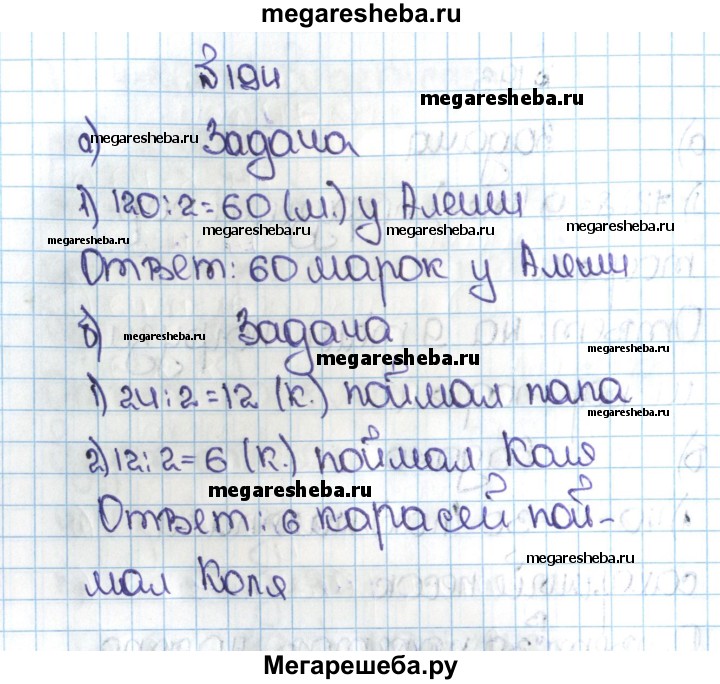 megaresheba.ru
№194
megaresheba.ru
а) megaresheba.ru Задача
1) 120:2=60 (м.) у Алеши
megaresheba.ru megaresheba.ru
Ответ: 60 марок у Алеши
б) megaresheba.ru Задача
megaresheba.ru megaresheba.ru
1) 24:2=12 (к.) поймал папа
megaresheba.ru
2) 12:2=6 (к.) поймал Коля
megaresheba.ru
Ответ: 6 карасей пой-
megaresheba.ru
мал Коля
Мегарешеба.ру